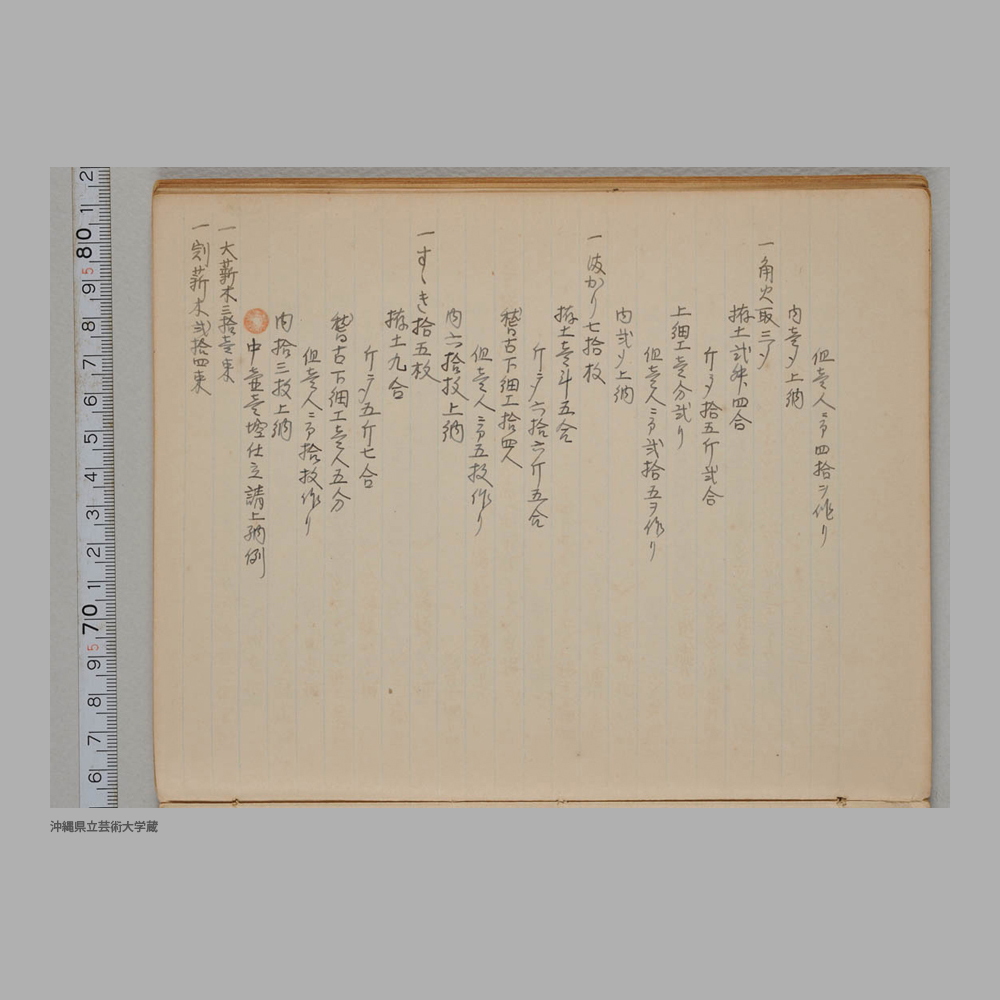 但壱人ニ而四拾ヲ作り
内壱ツ上納
一角火取三ツ
拵土弐舛四合
斤ニ〆拾五斤弐合
上細工壱分弐り
但壱人ニ而弐拾五ヲ作り
内弐ツ上納
一 波かり七拾枚
拵土壱斗五合
斤ニ〆六拾六斤五合
稽古下細工拾四人
但壱人ニ而五枚作り
内六拾枚上納
一すゝき拾五枚
拵土九合
斤ニ〆五斤七合
稽古下細工壱人五分
但壱人ニ而拾枚作り
内拾三枚上納
中壷壱塰仕立請上納例
一大薪木三拾壱束
一割薪木弐拾四束
沖縄県立芸術大学蔵
80
70